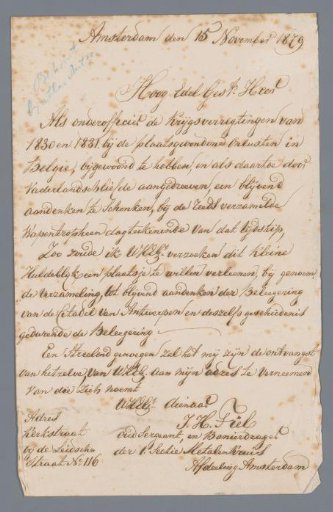 Amsterdam den 15 November 1879
Hoog Edel Gestr. Heer
Als onderofficier de krijgsverrigtingen van
1830 en 1831 bij de plaatsgevonden onlusten in
België, bijgewoond te hebben, en als daartoe door
Vaderlandsliefde aangedreven, een blijvend
aandenken te schenken, bij de reeds verzamelde
Wapentropheen dagteekenende van dat tijdstip,
Zoo zoude ik UWEdG. verzoeken dit kleine
Huldeblijk een plaatsje te willen verleenen, bij genoemde
de verzameling, tot blijvend aandenken der Belegering
van de Citadel van Antwerpen en deszelfs geschiedenis
gedurende de Belegering
Een streelend genoegen zal het mij zijn de ontvangst
van hetzelve van UWEdG aan mijn adres te vernemen
Van die zich noemt
UWEdG. dienaar
J. H. Fiel
Adres
Kerkstraat
bij de Leidsche
straat No. 116
Oud Sergeant, en Banierdrager
der 1e Sectie Metalenkruis
Afdeeling Amsterdam